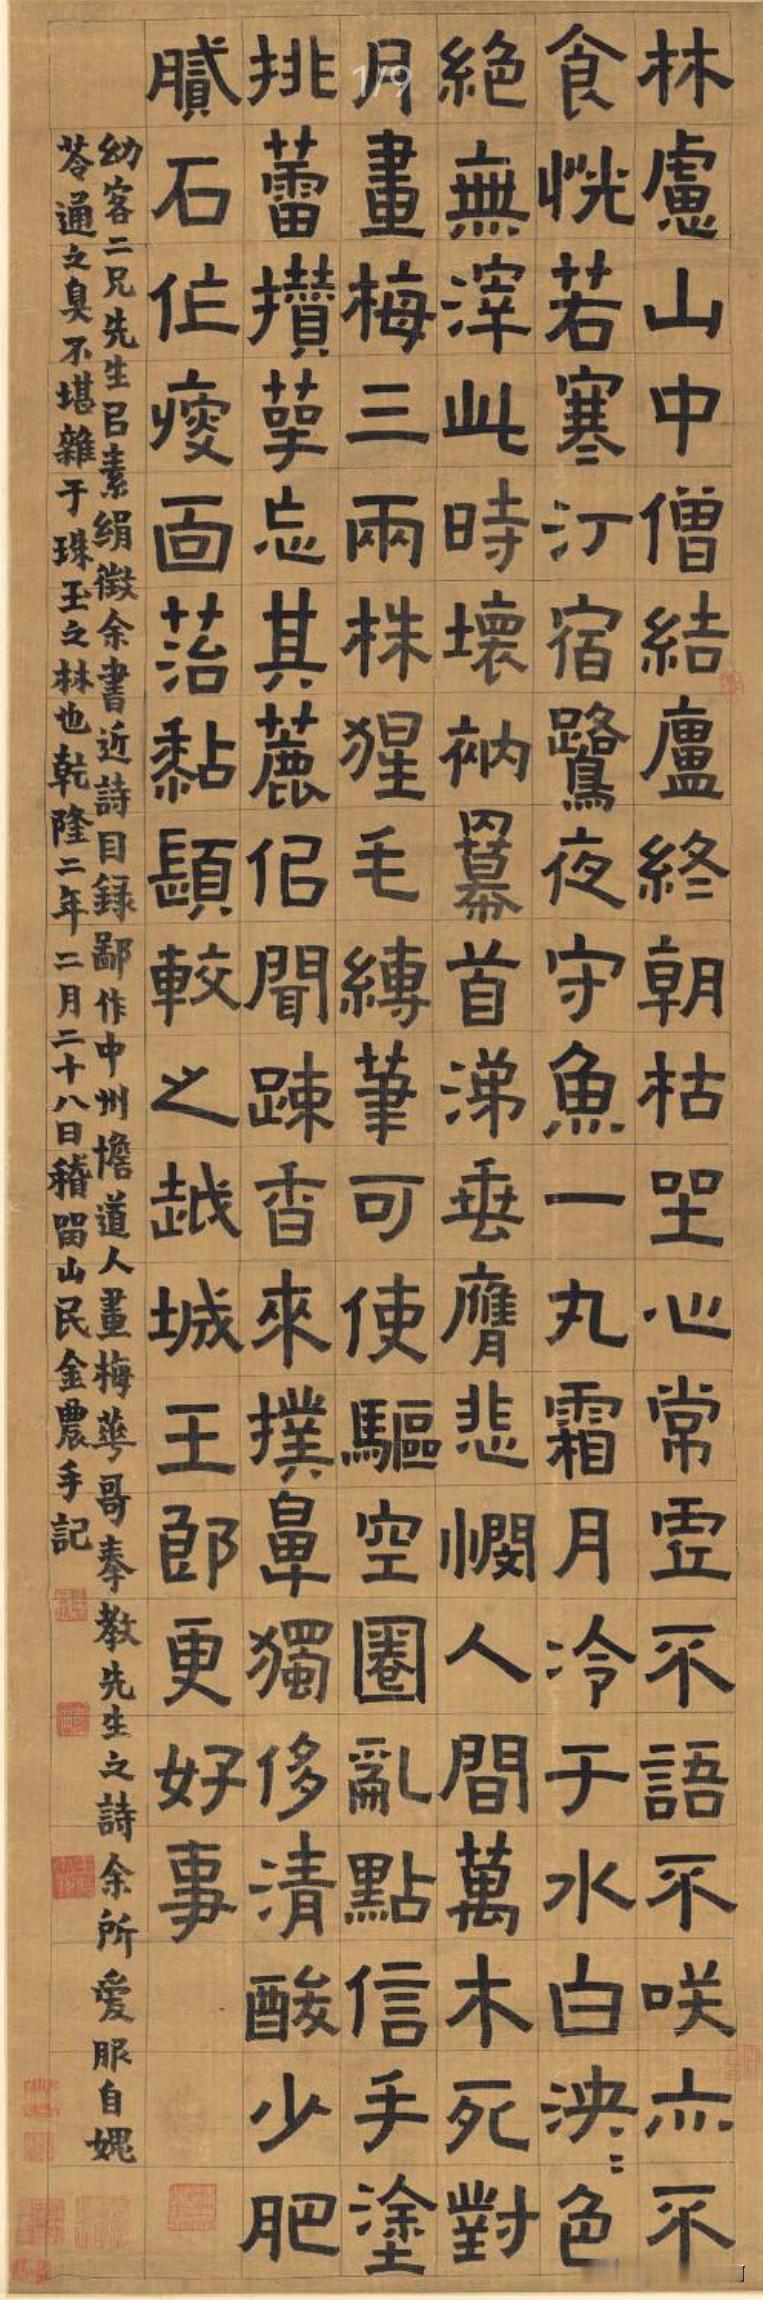 林慮山中僧結廬終朝枯坐心常虛不語不咲亦不
食恍若寒汀宿鷺夜守魚一丸霜月冷于水白泱〻色
絕無滓此時壞衲羃首涕垂膺悲憫人間萬木死對
月畫梅三兩株猩毛縛筆可使驅空圈亂點信手塗
挑蕾攢萼忘其麤但聞踈香來撲鼻獨侈清酸少肥
膩石作瘦面苔黏顋較之越城王郎更好事
幼客二兄先生㠯素絹徵余書近詩目録鄙作中州憺道人畫梅華哥奉教先生之詩余所愛服自媿
苓通之臭不堪雜于珠玉之林也乾隆二年二月二十八日稽留山民金農手記
1/9